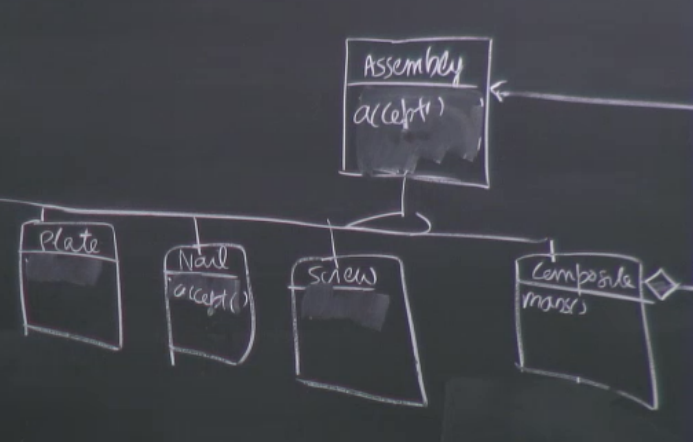 Assembly
accept()
Plate
Nail
accept()
Screw
Composite
mass()